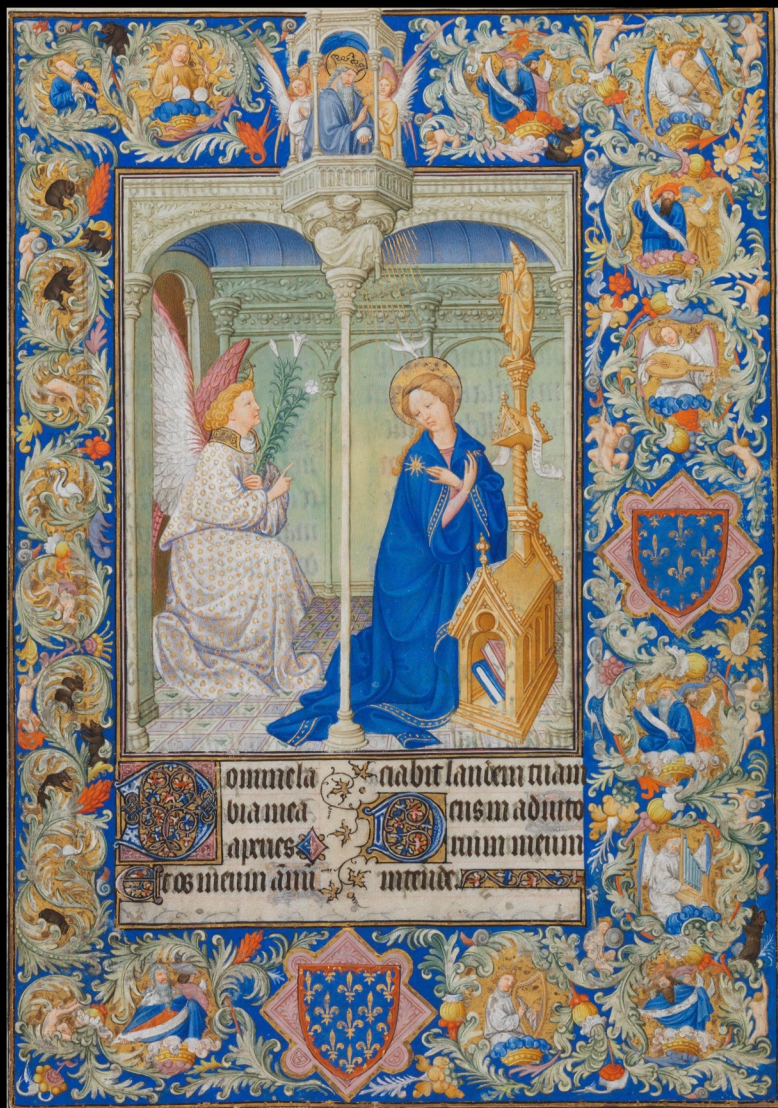 Domine la
bia mea
aperies
Et os meum annu
ciabit laudem tuam
Deus in adiuto
rium meum
intende.